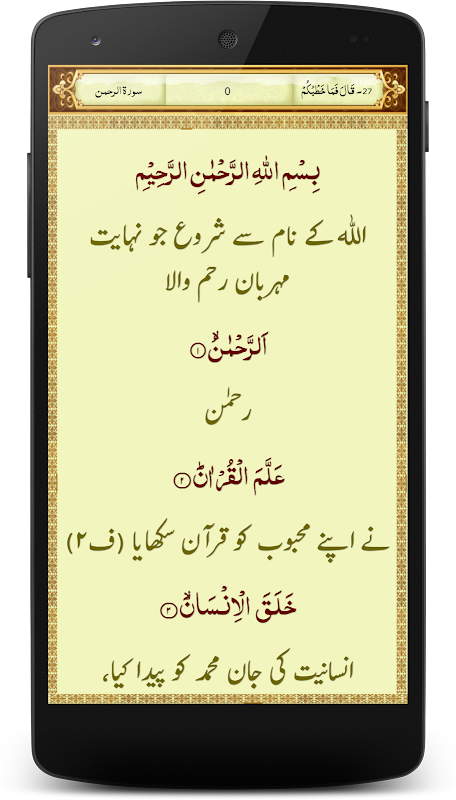 27۔ قَالَ فَمَا خَطْبُكُمْ 0 سورة الرحمن
بِسْمِ اللهِ الرَّحْمٰنِ الرَّحِيْمِ
اللہ کے نام سے شروع جو نہایت
مہربان رحم والا
اَلرَّحْمٰنُۙ ۱
رحمٰن
عَلَّمَ الْقُرْاٰنَؕ ۲
نے اپنے محبوب کو قرآن سکھایا (ف۲)
خَلَقَ الْاِنْسَانَۙ ۳
انسانیت کی جان محمد کو پیدا کیا،